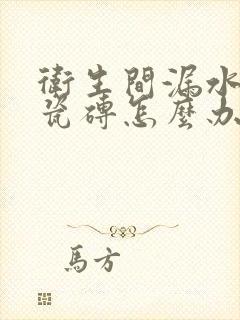 衛生間漏水
瓷磚怎麼办
馬方